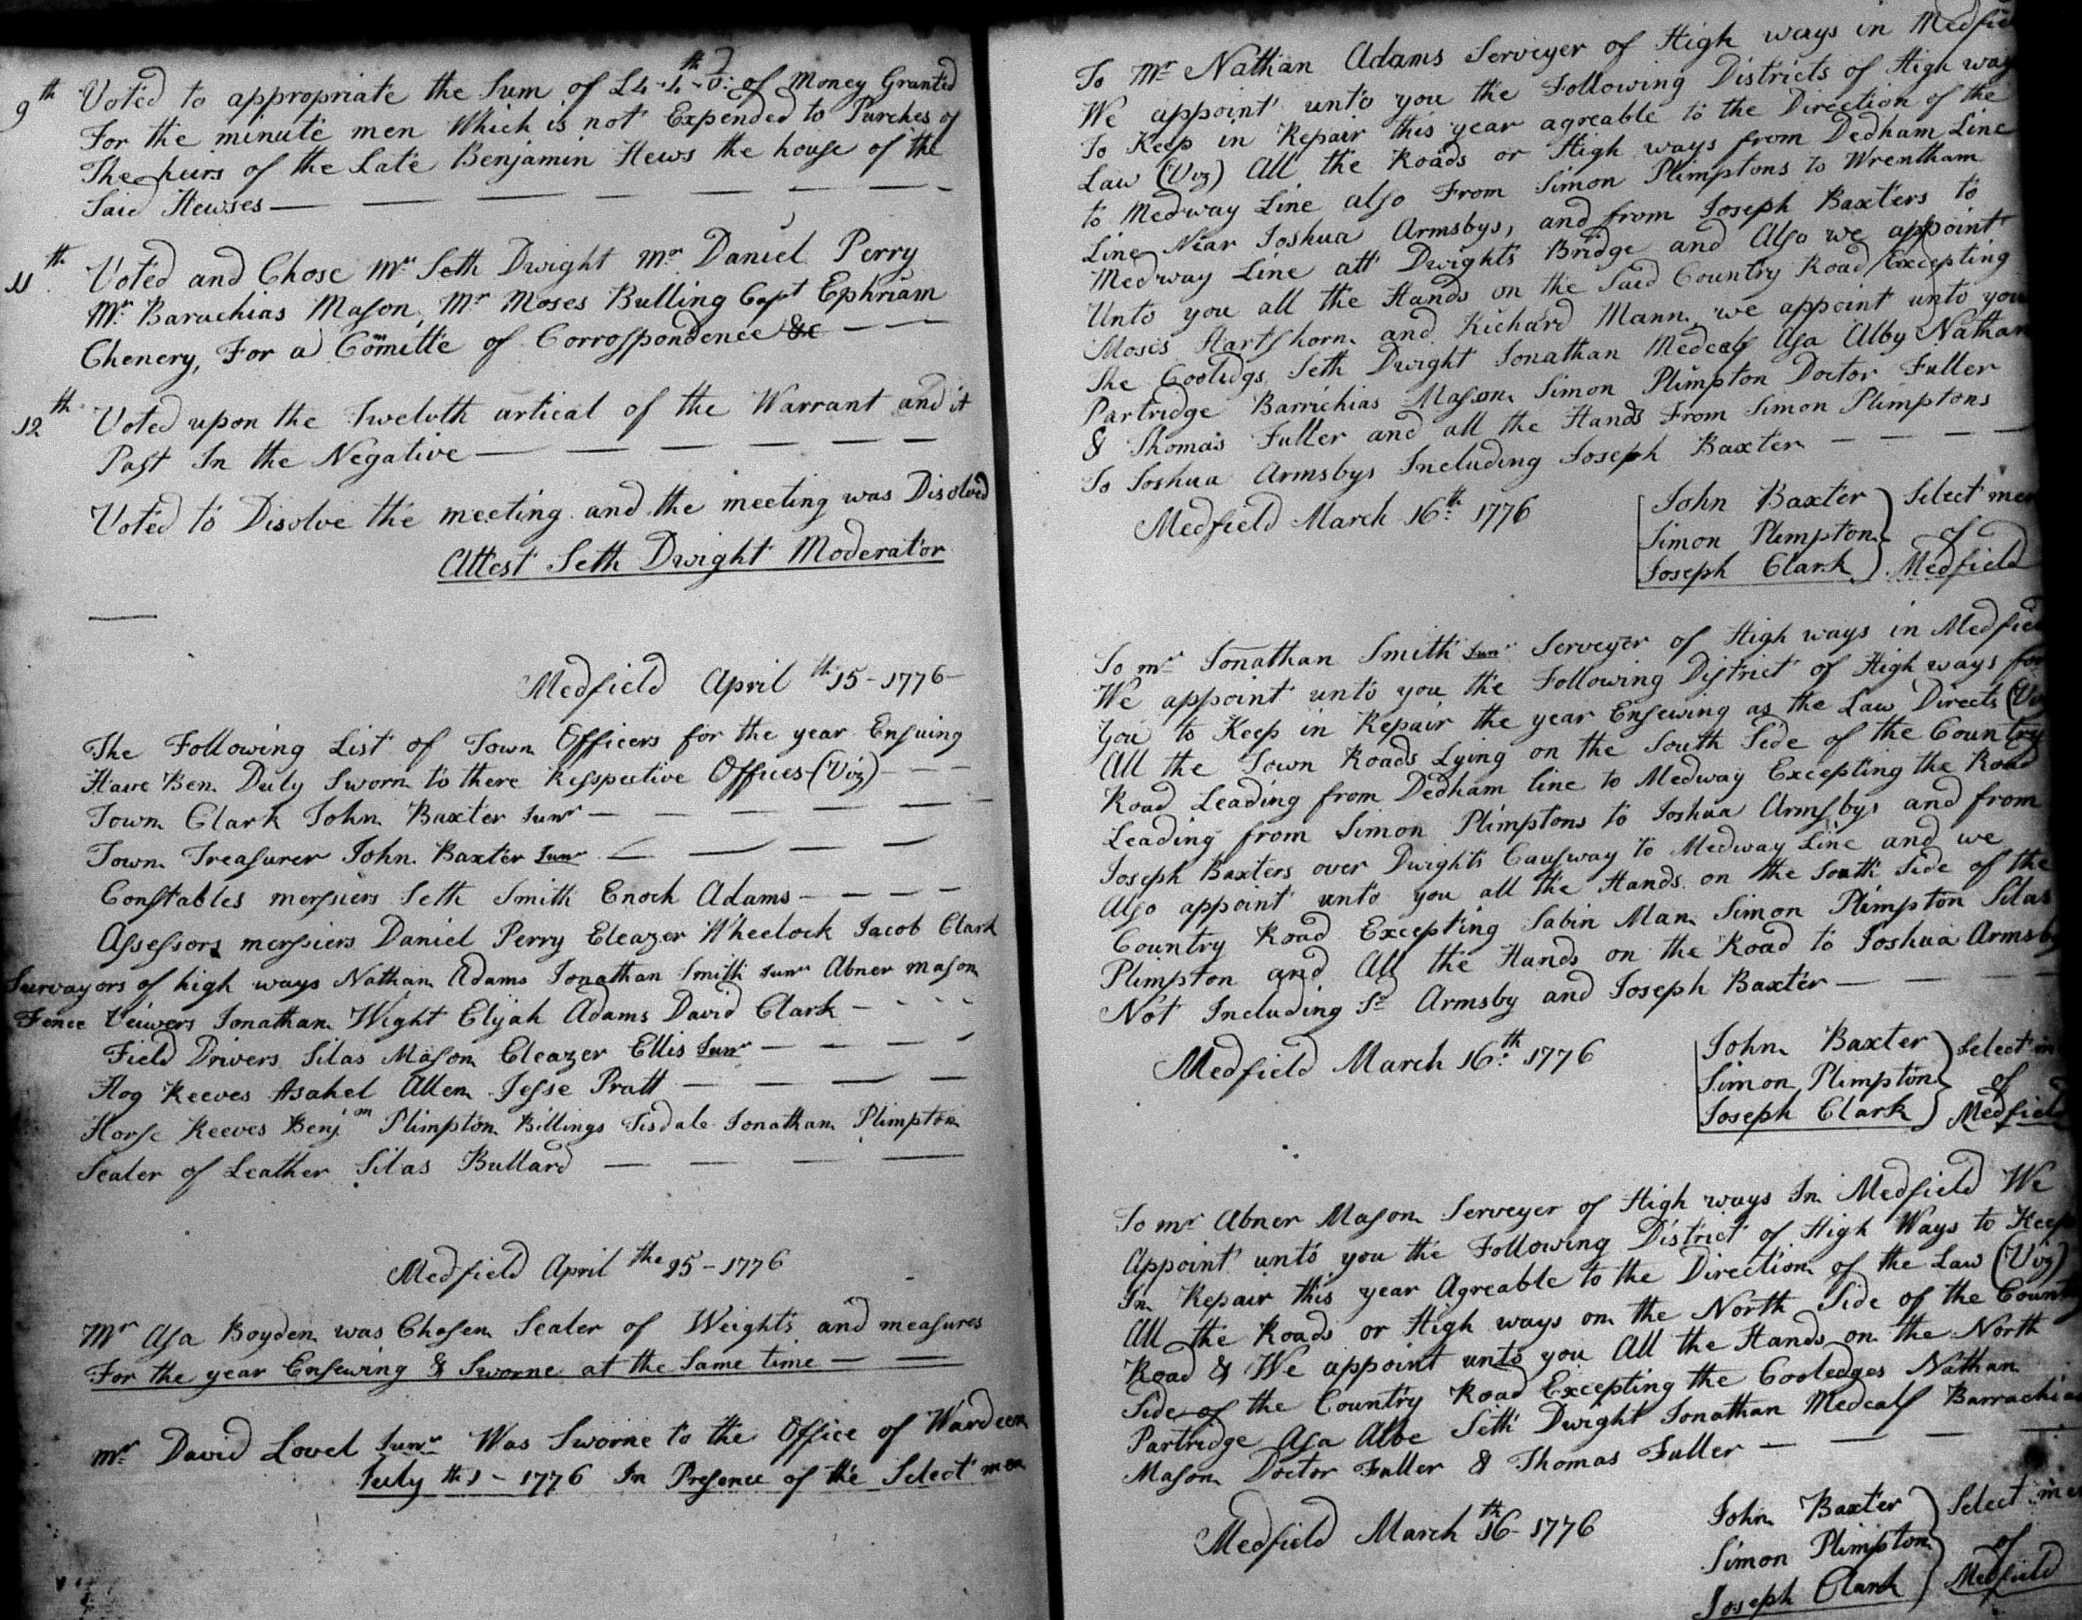 9th Voted to appropriate the Sum of £4-4-0: of Money Granted
For the minute men Which is not Expended to Purches of
The heirs of the Late Benjamin Hews the house of the
Said Hewses
11th Voted and Chose Mr Seth Dwight Mr Daniel Perry
Mr Barachias Mason, Mr Moses Bulling Capt Ephriam
Chenery, For a Comitte of Corrosspondence &c
12th Voted upon the Twelvth artical of the Warrant and it
Past In the Negative
Voted to Disolve the meeting and the meeting was Disolved
Attest Seth Dwight Moderator
Medfield April th 15-1776
The Following List of Town Officers for the year Ensuing
Have Ben Duly Sworn to there Resspective Offices (Viz)
Town Clark John Baxter Junr
Town Treasurer John Baxter Junr
Constables mersiers Seth Smith Enoch Adams
Assessors mersiers Daniel Perry Eleazer Wheelock Jacob Clark
Survayors of high ways Nathan Adams Jonathan Smith Junr Abner Mason
Fence Veiwers Jonathan Wight Elijah Adams David Clark
Field Drivers Silas Mason Eleazer Ellis Junr
Hog Reeves Asahel Allen Jesse Pratt
Horse Reeves Benjm Plimpton Billings Tisdale Jonathan Plimpton
Sealer of Leather Silas Bullard
Medfield April the 25-1776
Mr Asa Boyden was Chosen Sealer of Weights and measures
For the year Ensewing & Sworne at the Same time
Mr David Lovel Junr Was Sworne to the Office of Wardeen
July th 1-1776 In Presence of the Select men
To Mr Nathan Adams Serveyer of High ways in Medfie
We appoint unto you the Following Districts of High way
To Keep in Repair this year agreable to the Direction of the
Law (Viz) All the Roads or High ways from Dedham Line
to Medway Line also From Simon Plimptons to Wrentham
Line Near Joshua Armsbys, and from Joseph Baxters to
Medway Line att Dwights Bridge and Also we appoint
Unto you all the Hands on the Said Country Road Excepting
Moses Hartshorn and Richard Mann we appoint unto you
The Coolidgs Seth Dwight Jonathan Medcalf Asa Alby Nathan
Partridge Barrichias Mason Simon Plimpton Doctor Fuller
& Thomas Fuller and all the Hands From Simon Plimptons
To Joshua Armsbys Including Joseph Baxter
Medfield March 16th 1776
John Baxter
Simon Plimpton
Joseph Clark
Select men
of
Medfield
To mr Jonathan Smith Junr Serveyer of High ways in Medfiel
We appoint unto you the Following District of High ways for
you to Keep in Repair the year Ensewing as the Law Directs (Viz
All the Town Roads Lying on the South Side of the Country
Road Leading from Dedham line to Medway Excepting the Road
Leading from Simon Plimptons to Joshua Armsbys and from
Joseph Baxters over Dwights Causway to Medway Line and we
Also appoint unto you all the Hands on the South Side of the
Country Road Excepting Sabin Man Simon Plimpton Silas
Plimpton and All the Hands on the Road to Joshua Armsby
Not Including Sd Armsby and Joseph Baxter
Medfield March 16th 1776
John Baxter
Simon Plimpton
Joseph Clark
Select m
of
Medfield
To mr Abner Mason Serveyer of High ways In Medfield We
Appoint unto you the Following District of High Ways to Keep
In Repair this year Agreable to the Direction of the Law (Viz)
All the Roads or High ways on the North Side of the Count
Road & We appoint unto you All the Hands on the North
Side of the Country Road Excepting the Cooledges Nathan
Partredge Asa Albe Seth Dwight Jonathan Medcalf Barrachias
Mason Doctor Fuller & Thomas Fuller
Medfield March th 16-1776
John Baxter
Simon Plimpton
Joseph Clark
Select me
of
Medfield